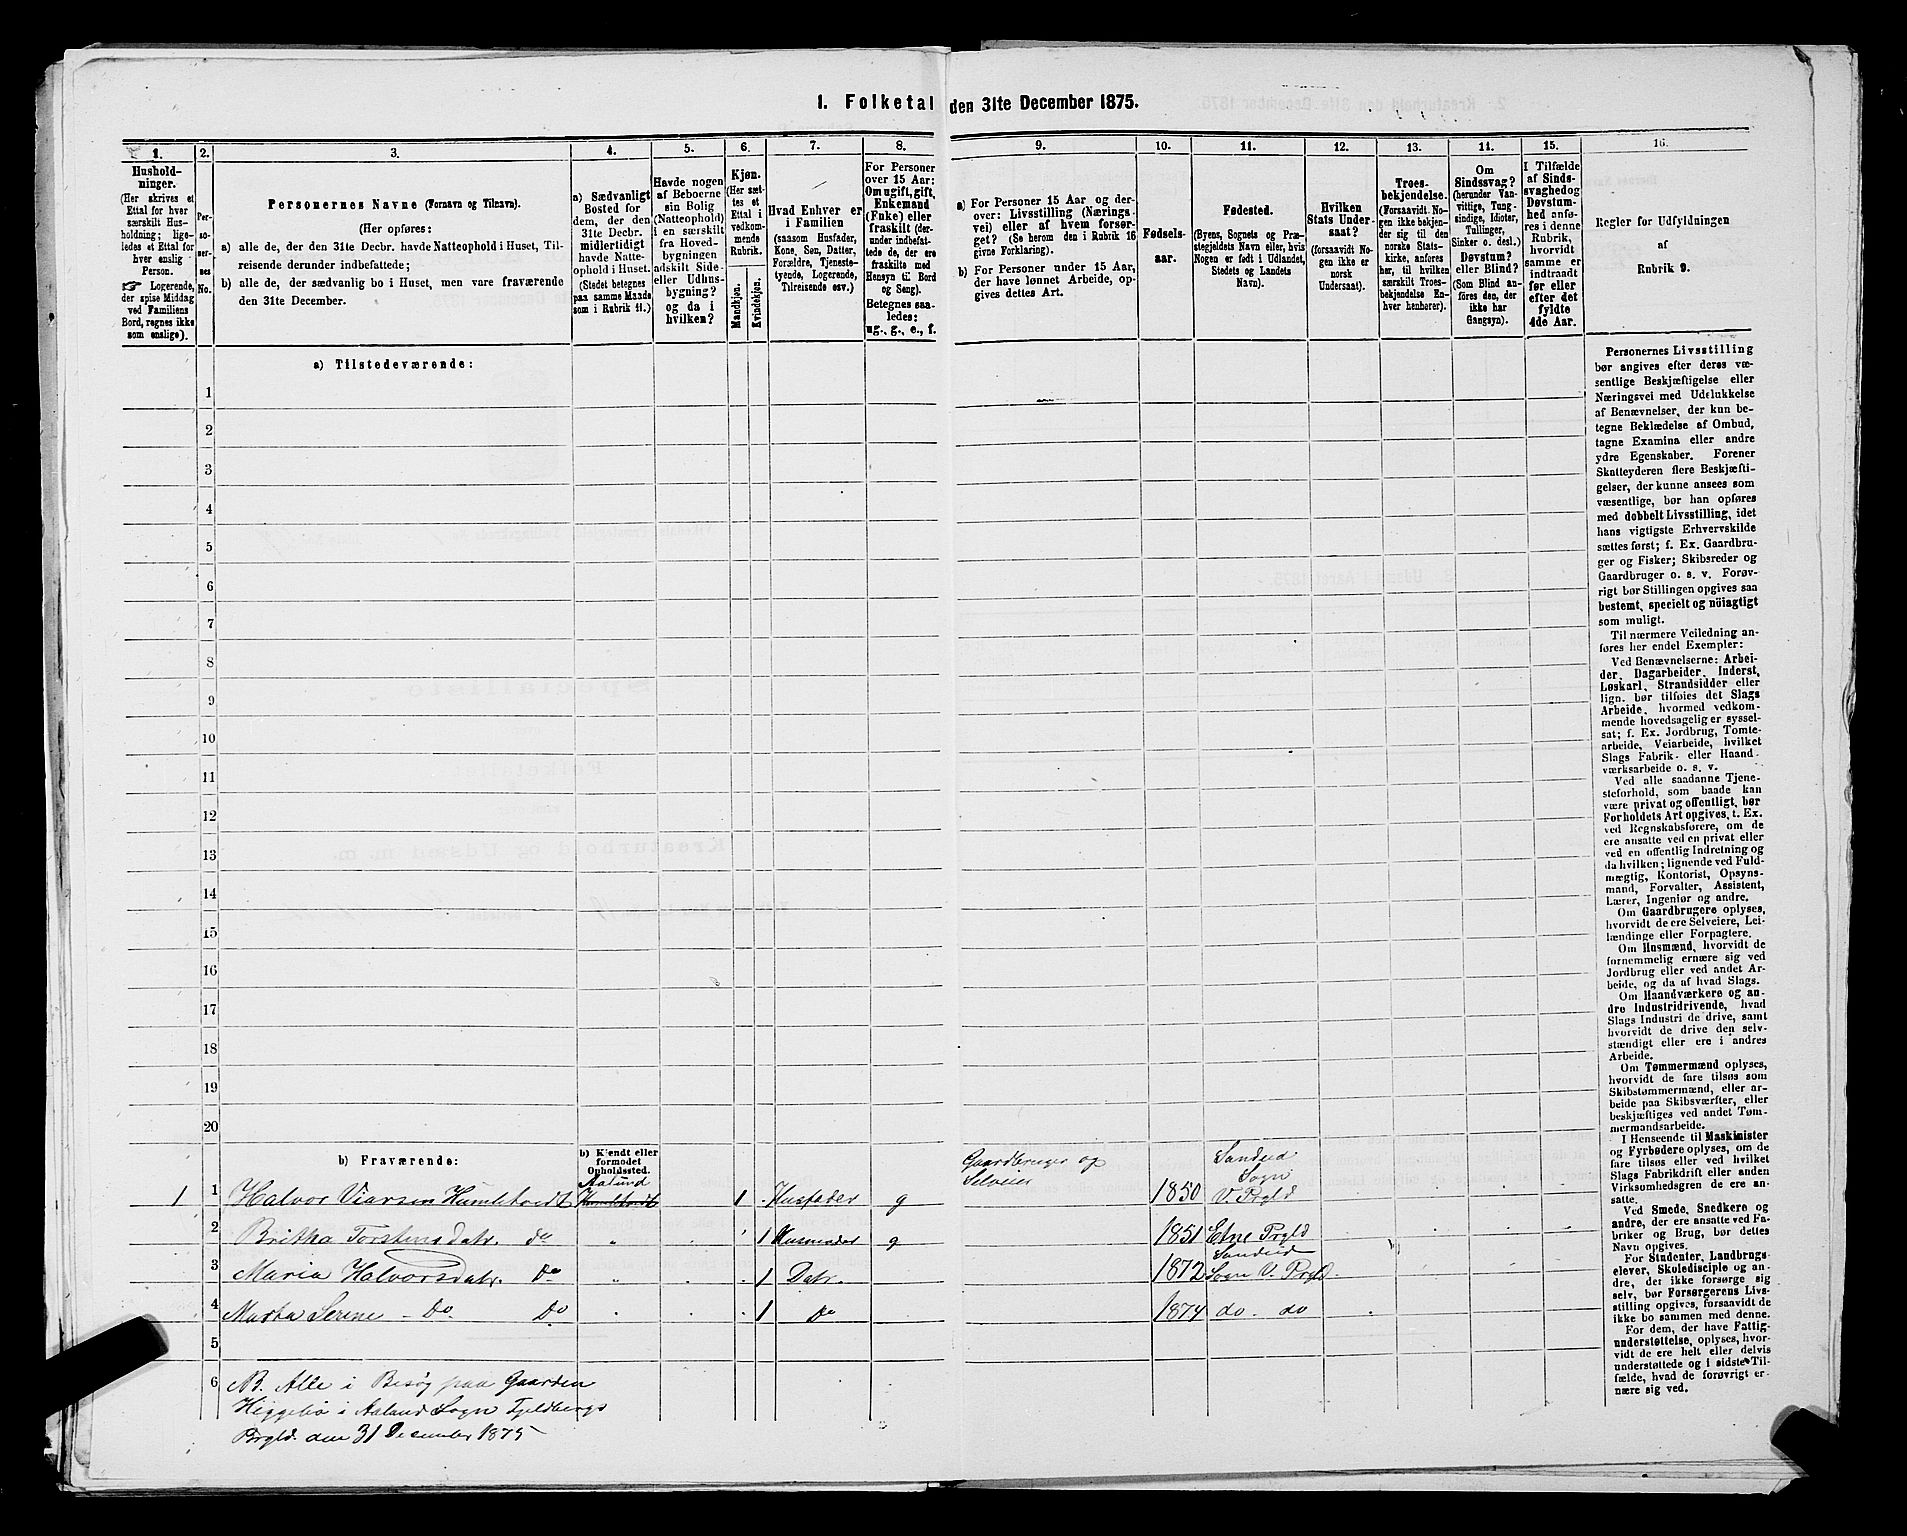 1. Folketal den 31te December 1875.
1.
Hushold-
ninger.
(Her skrives et
Ettal for hver
særskilt Hus-
holdning; lige-
ledes et Ettal for
hver enslig
Person.
☞ Logerende,
der spise Middag
ved Familiens
Bord, regnes ikke
som enslige).
2.
Per-
so-
ner-
nes
No.
3.
Personernes Navne (Fornavn og Tilnavn).
(Her opføres:
a) alle de, der den 31te Decbr. havde Natteophold i Huset, Til-
reisende derunder indbefattede;
b) alle de, der sædvanlig bo i Huset, men vare fraværende
den 31te December.
4.
a) Sædvanligt
Bosted for
dem, der den
31te Decbr.
midlertidigt
havde Natte-
ophold i Huset.
(Stedet betegnes
paa samme Maade
som i Rubrik 11.)
5.
Havde nogen
af Beboerne
sin Bolig
(Natteophold)
i en særskilt
fra Hoved-
bygningen
adskilt Side-
eller Udhus-
bygning?
og da i
hvilken?
6.
Kjøn.
(Her sæt-
tes et
Ettal i
vedkom-
mende
Rubrik.
Mandkjøn.
Kvindekjøn.
7.
Hvad Enhver er
i Familien
(saasom Husfader,
Kone, Søn, Datter,
Forældre, Tjeneste-
tyende, Logerende,
Tilreisende osv.)
8.
For Personer
over 15 Aar:
Om ugift, gift,
Enkemand
(Enke) eller
fraskilt (der-
under indbefat-
tede de, der ere
fraskilte med
Hensyn til Bord
og Seng).
Betegnes saa-
ledes:
ug., g., e., f.
9.
a) For Personer 15 Aar og der-
over: Livsstilling (Nærings-
vei) eller af hvem forsør-
get? (Se herom den i Rubrik 16
givne Forklaring).
b) For Personer under 15 Aar,
der have lønnet Arbeide, op-
gives dettes Art.
10.
Fødsels-
aar.
11.
Fødested.
(Byens, Sognets og Præ-
stegjeldets Navn eller, hvis
Nogen er født i Udlandet,
Stedets og Landets
Navn).
12.
Hvilken
Stats Under-
saat?
(forsaavidt No-
gen ikke er
norsk
Undersaat).
13.
Troes-
bekjendelse.
(Forsaavidt No-
gen ikke bekjen-
der sig til den
norske Stats-
kirke, anføres
her, til hvilken
særskilt Troes-
bekjendelse En-
hver henhører).
14.
Om
Sindssvag?
(herunder Van-
vittige, Tung-
sindige, Idioter,
Tullinger,
Sinker o. desl.)
Døvstum?
eller Blind?
(Som Blind an-
føres den, der
ikke har
Gangsyn).
15.
I Tilfælde
af Sinds-
svaghed og
Døvstum-
hed anfø-
res i denne
Rubrik,
hvorvidt
samme er
indtraadt
før eller
efter det
fyldte
4de Aar.
16.
Regler for Udfyldningen
af
Rubrik 9.
a) Tilstedeværende:
1
2
3
4
5
6
7
8
9
10
11
12
13
14
15
16
17
18
19
20
b) Fraværende:
b) Kjendt eller
formodet
Opholdssted.
1 1 Halvor Viarsen Humlekvedt Aalund Humlekvedt 1 Husfader g Gaardbruger og Selveier 1850 Sandeid Sogn V. Prgld
2 Britha Torstensdatr. do " 1 Husmoder g 1851 Etne Prgld
3 Maria Halvorsdatr. Do " 1 Datr. 1872 Sandeid Sogn V. Prgld.
4 Marta Serine - Do Do 1 Do 1874 do. do
5
6 NB. Alle i Besøg paa Gaarden
Higgebø i Aaland Sogn Fjeldbergs
Prgld. den 31 December 1875
Personernes Livsstilling
bør angives efter deres væ-
sentlige Beskjæftigelse eller
Næringsvei med Udelukkelse
af Benævnelser, der kun be-
tegne Beklædelse af Ombud,
tagne Examina eller andre
ydre Egenskaber. Forener
Skatteyderen flere Beskjæfti-
gelser, der kunne ansees som
væsentlige, bør han opføres
med dobbelt Livsstilling, idet
hans vigtigste Erhvervskilde
sættes først; f. Ex. Gaardbru-
ger og Fisker; Skibsreder og
Gaardbruger o. s. v. Forøv-
rigt bør Stillingen opgives saa
bestemt, specielt og nøiagtigt
som muligt.
Til nærmere Veiledning an-
føres her endel Exempler:
Ved Benævnelserne: Arbei-
der, Dagarbeider, Inderst,
Løskarl, Strandsidder eller
lign. bør tilføies det Slags
Arbeide, hvormed vedkom-
mende hovedsagelig er syssel-
sat; f. Ex. Jordbrug, Tomte-
arbeide, Veiarbeide, hvilket
Slags Fabrik- eller Haand-
værksarbeide o. s. v.
Ved alle saadanne Tjene-
steforhold, som baade kan
være privat og offentligt, bør
Forholdets Art opgives, t. Ex.
ved Regnskabsførere, om de
ere ansatte ved en privat eller
ved en offentlig Indretning og
da hvilken; lignende ved Fuld-
mægtig, Kontorist, Opsyns-
mand, Forvalter, Assistent,
Lærer, Ingeniør og andre.
Om Gaardbrugere oplyses,
hvorvidt de ere Selveiere, Lei-
lændinge eller Forpagtere.
Om Husmænd, hvorvidt de
fornemmelig ernære sig ved
Jordbrug eller ved andet Ar-
beide, og da af hvad Slags.
Om Haandværkere og an-
dre Industridrivende, hvad
Slags Industri de drive, samt
hvorvidt de drive den selv-
stændigt eller ere i andres
Arbeide.
Om Tømmermænd oplyses,
hvorvidt de fare tilsøs som
Skibstømmermænd, eller ar-
beide paa Skibsværfter, eller
beskjæftiges ved andet Tøm-
mermandsarbeide.
I Henseende til Maskinister
og Fyrbødere oplyses, om de
fare tilsøs eller ved hvilket
Slags Fabrikdrift eller anden
Virksomhedsgren de ere an-
satte.
Ved Smede, Snedkere og
andre, der ere ansatte ved Fa-
briker og Brug, bør dettes
Navn opgives.
For Studenter, Landbrugs-
elever, Skoledisciple og an-
dre, der ikke forsørge sig
selv, bør Forsørgerens Livs-
stilling opgives, forsaavidt de
ikke bo sammen med denne.
For dem, der have Fattig-
understøttelse, oplyses, hvor-
vidt de ere helt eller delvis
understøttede og i sidste Til-
fælde, hvad de forøvrigt er-
nære sig ved.